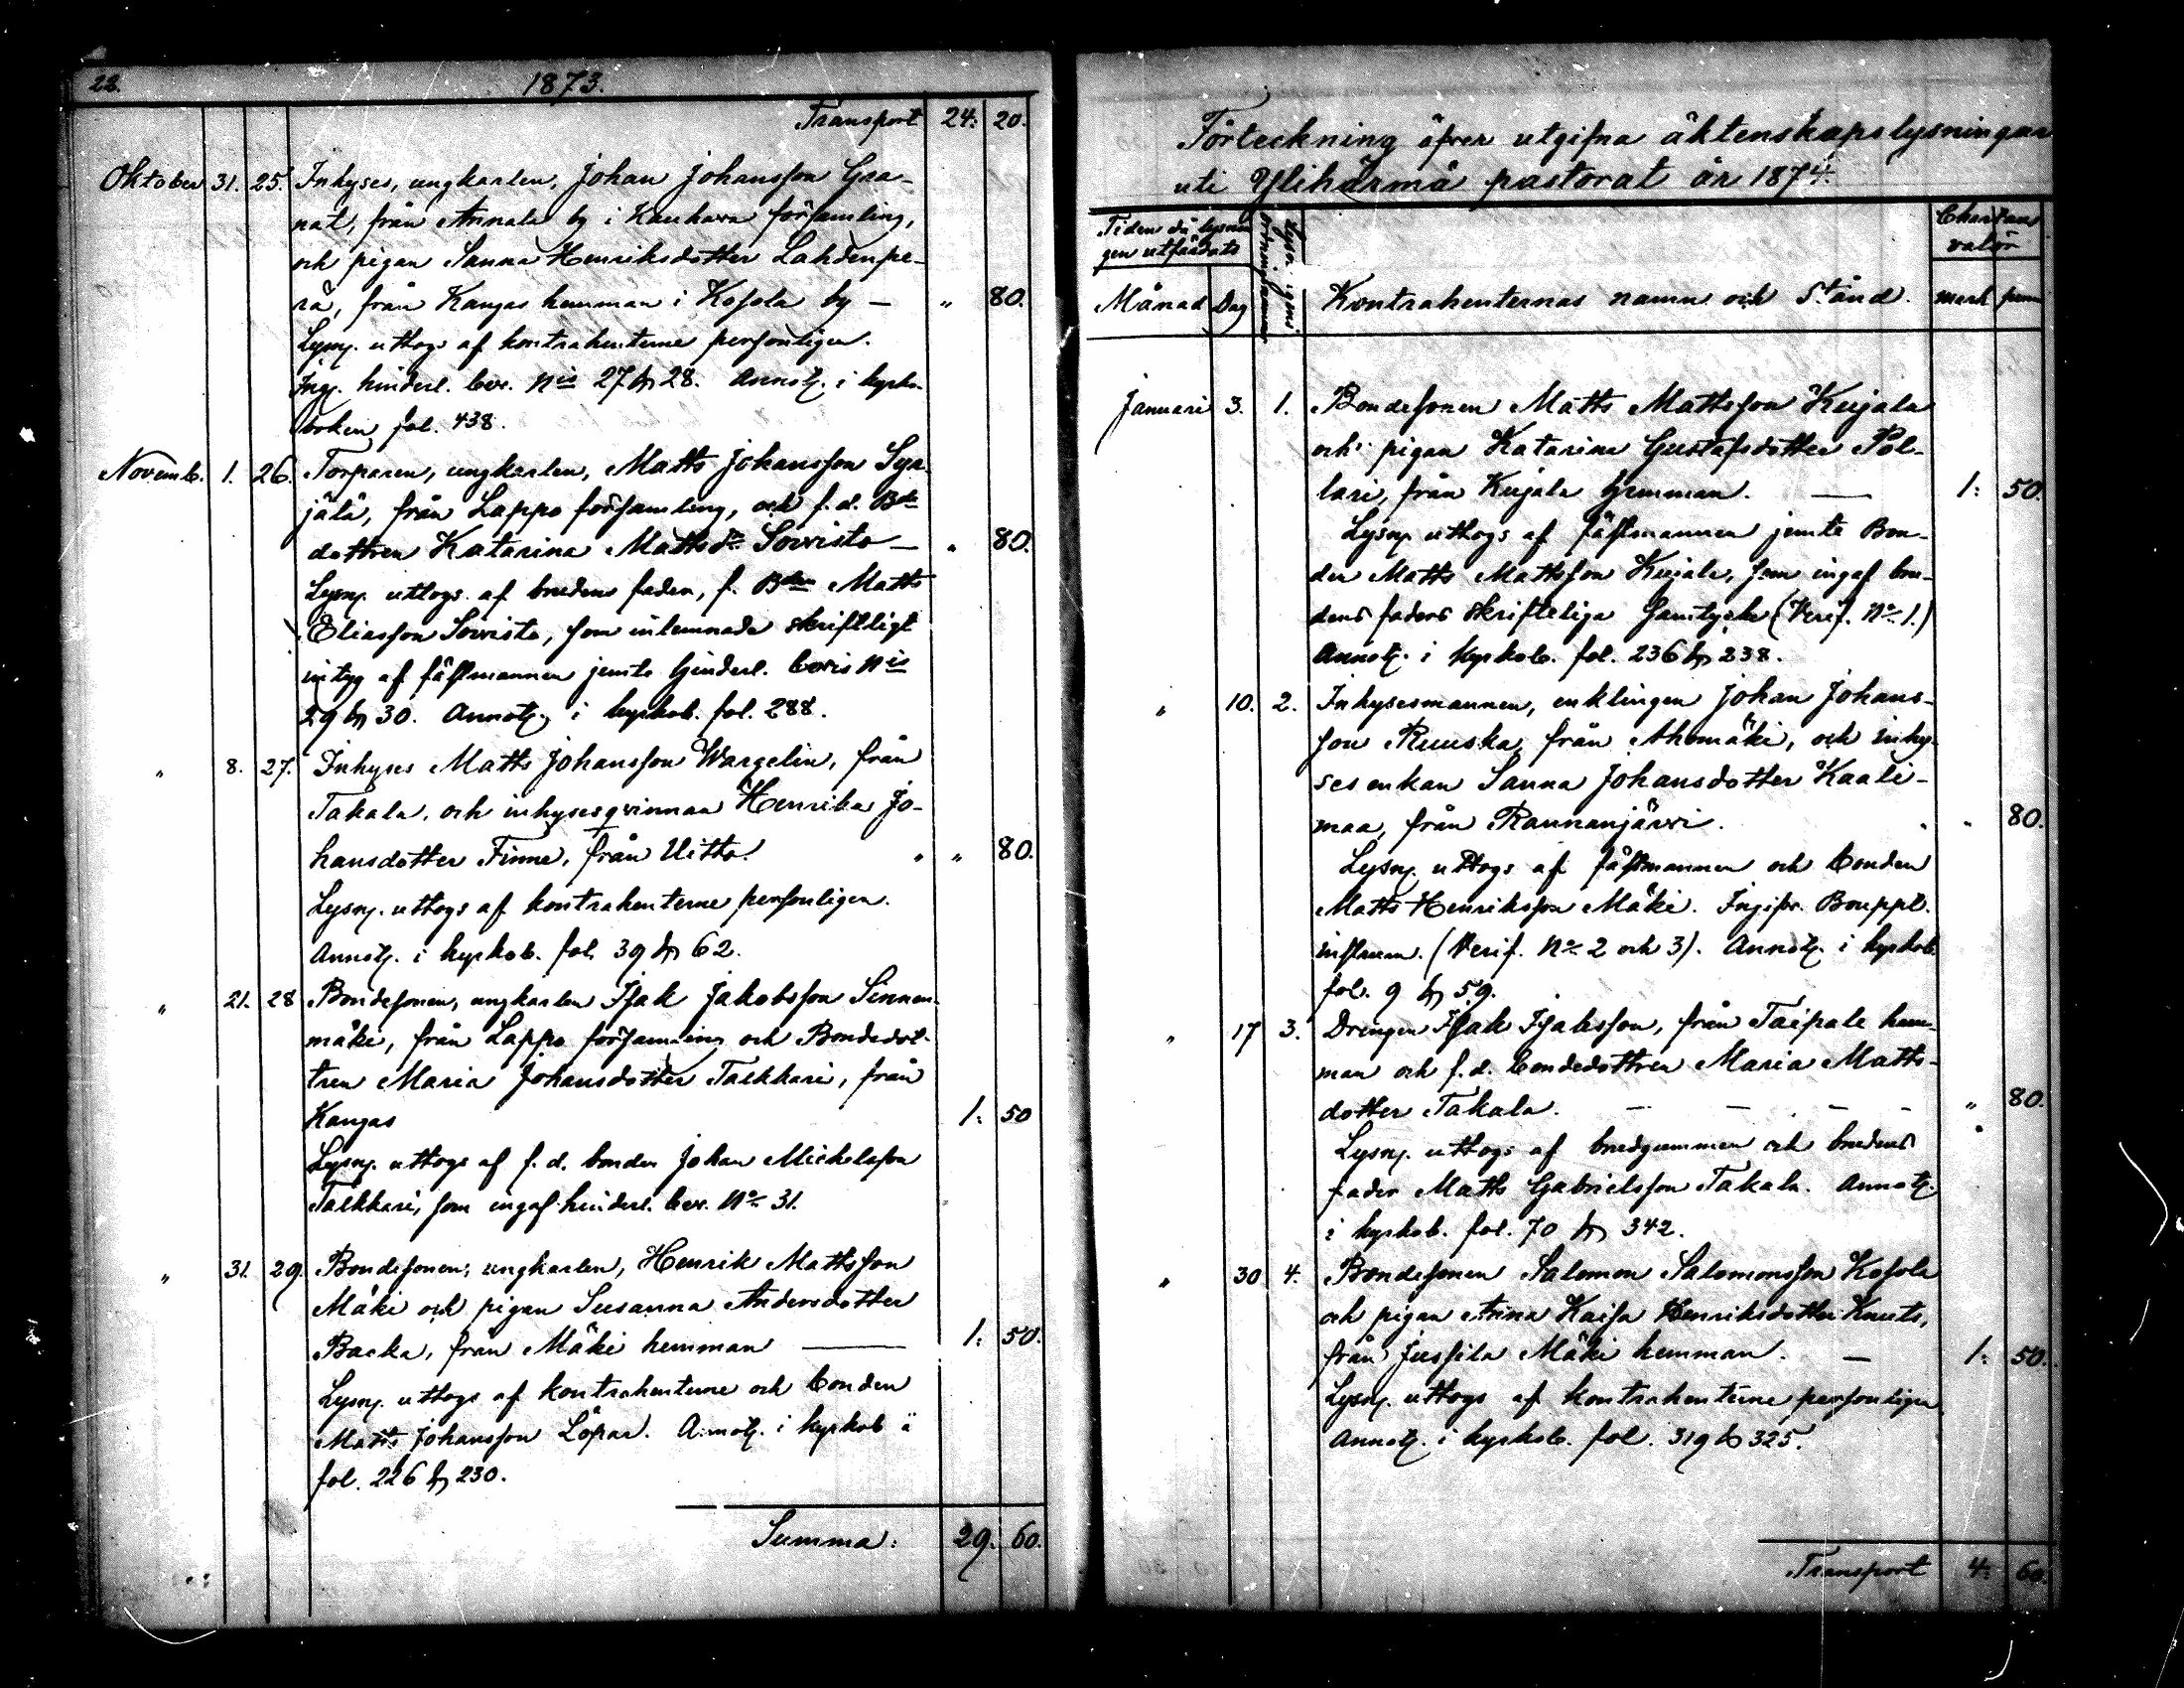 22.
1873.
Transport 24: 20.
Oktober 31. 25. Inhyses, ungkarlen, Johan Johansson Gra-
nat, från Annala by i Kauhava församling,
och pigan Sanna Henriksdotter Lahdenpe-
rä, från Kangas hemman i Kosola by — " 80.
Lysn. uttogs af kontrahenterne personligen.
Ing. hinderl. bev. Nis 27 & 28. Annot. i kyrko-
boken fol. 438.
Novemb. 1. 26. Torparen, ungkarlen, Matts Johansson Syr
jälä, från Lappo församling, och f. d. Bde
dottren Katarina Mattsdr Sorvisto — " 80.
Lysn. uttogs af brudens fader, f. Bden Matts
Eliasson Sorvisto, som inlemnade skriftligt
intyg af fästmannen jemte hinderl. bevis Nis
29 & 30. Annot. i kyrkob. fol. 288.
" 8. 27. Inhyses Matts Johansson Wargelin, från
Takala, och inhysesqvinnan Henrika Jo-
hansdotter Finne, från Uitto. " " 80.
Lysn. uttogs af kontrahenterne personligen.
Annot. i kyrkob. fol. 39 & 62.
" 21. 28 Bondesonen, ungkarlen Isak Jakobsson Sinnen-
mäki, från Lappo församling och Bondedot-
tren Maria Johansdotter Talkkari, från
Kangas 1: 50
Lysn. uttogs af f. d. bonden Johan Michelsson
Talkkari, som ingaf hinderl. bev. No 31.
" 31. 29. Bondesonen, ungkarlen, Henrik Mattsson
Mäki och pigan Susanna Andersdotter
Backa, från Mäki hemman — 1: 50.
Lysn. uttogs af kontrahenterne och bonden
Matts Johansson Löpar. Annot. i kyrkob å
fol. 226 & 230.
Summa: 29. 60.
Förteckning öfver utgifna äktenskapslysningar
uti Ylihärmä pastorat år 1874.
Tiden då lysnin
gen utfärdats
Månad Dag
Kontrahenternas namn och Stånd.
valör
mark penni
Januari 3. 1. Bondesonen Matts Mattsson Kujala
och pigan Katarina Gustafsdotter Pol-
lari, från Kujala hemman. — 1: 50
Lysn. uttogs af fästmannen jemte Bon-
den Matts Mattsson Kujala, som ingaf bru-
dens faders skriftliga samtycke (Verif. No 1.)
Annot. i kyrkob. fol. 236 & 238.
" 10. 2. Inhysesmannen, enklingen Johan Johans-
son Ruuska, från Ahomäki, och inhy-
sesenkan Sanna Johansdotter Kaali-
maa, från Rannanjärvi. " " 80.
Lysn. uttogs af fästmannen och bonden
Matts Henriksson Mäki. Ingifv. Bouppt.
instrum. (Verif. No 2 och 3). Annot. i kyrkob.
fol. 9 & 59.
" 17 3. Drengen Isak Isaksson, från Taipale hem-
man och f. d. bondedottren Maria Matts-
dotter Takala. — — — — " 80.
Lysn. uttogs af brudgummen och brudens
fader Matts Gabrielsson Takala. Annot.
i kyrkob. fol. 70 & 342.
" 30 4. Bondesonen Salomon Salomonsson Kosola
och pigan Anna Kaisa Henriksdotter Knuts,
från Jussila Mäki hemman. — 1: 50.
Lysn. uttogs af kontrahenterne personligen
Annot. i kyrkob. fol. 319 & 325.
Transport 4: 60.